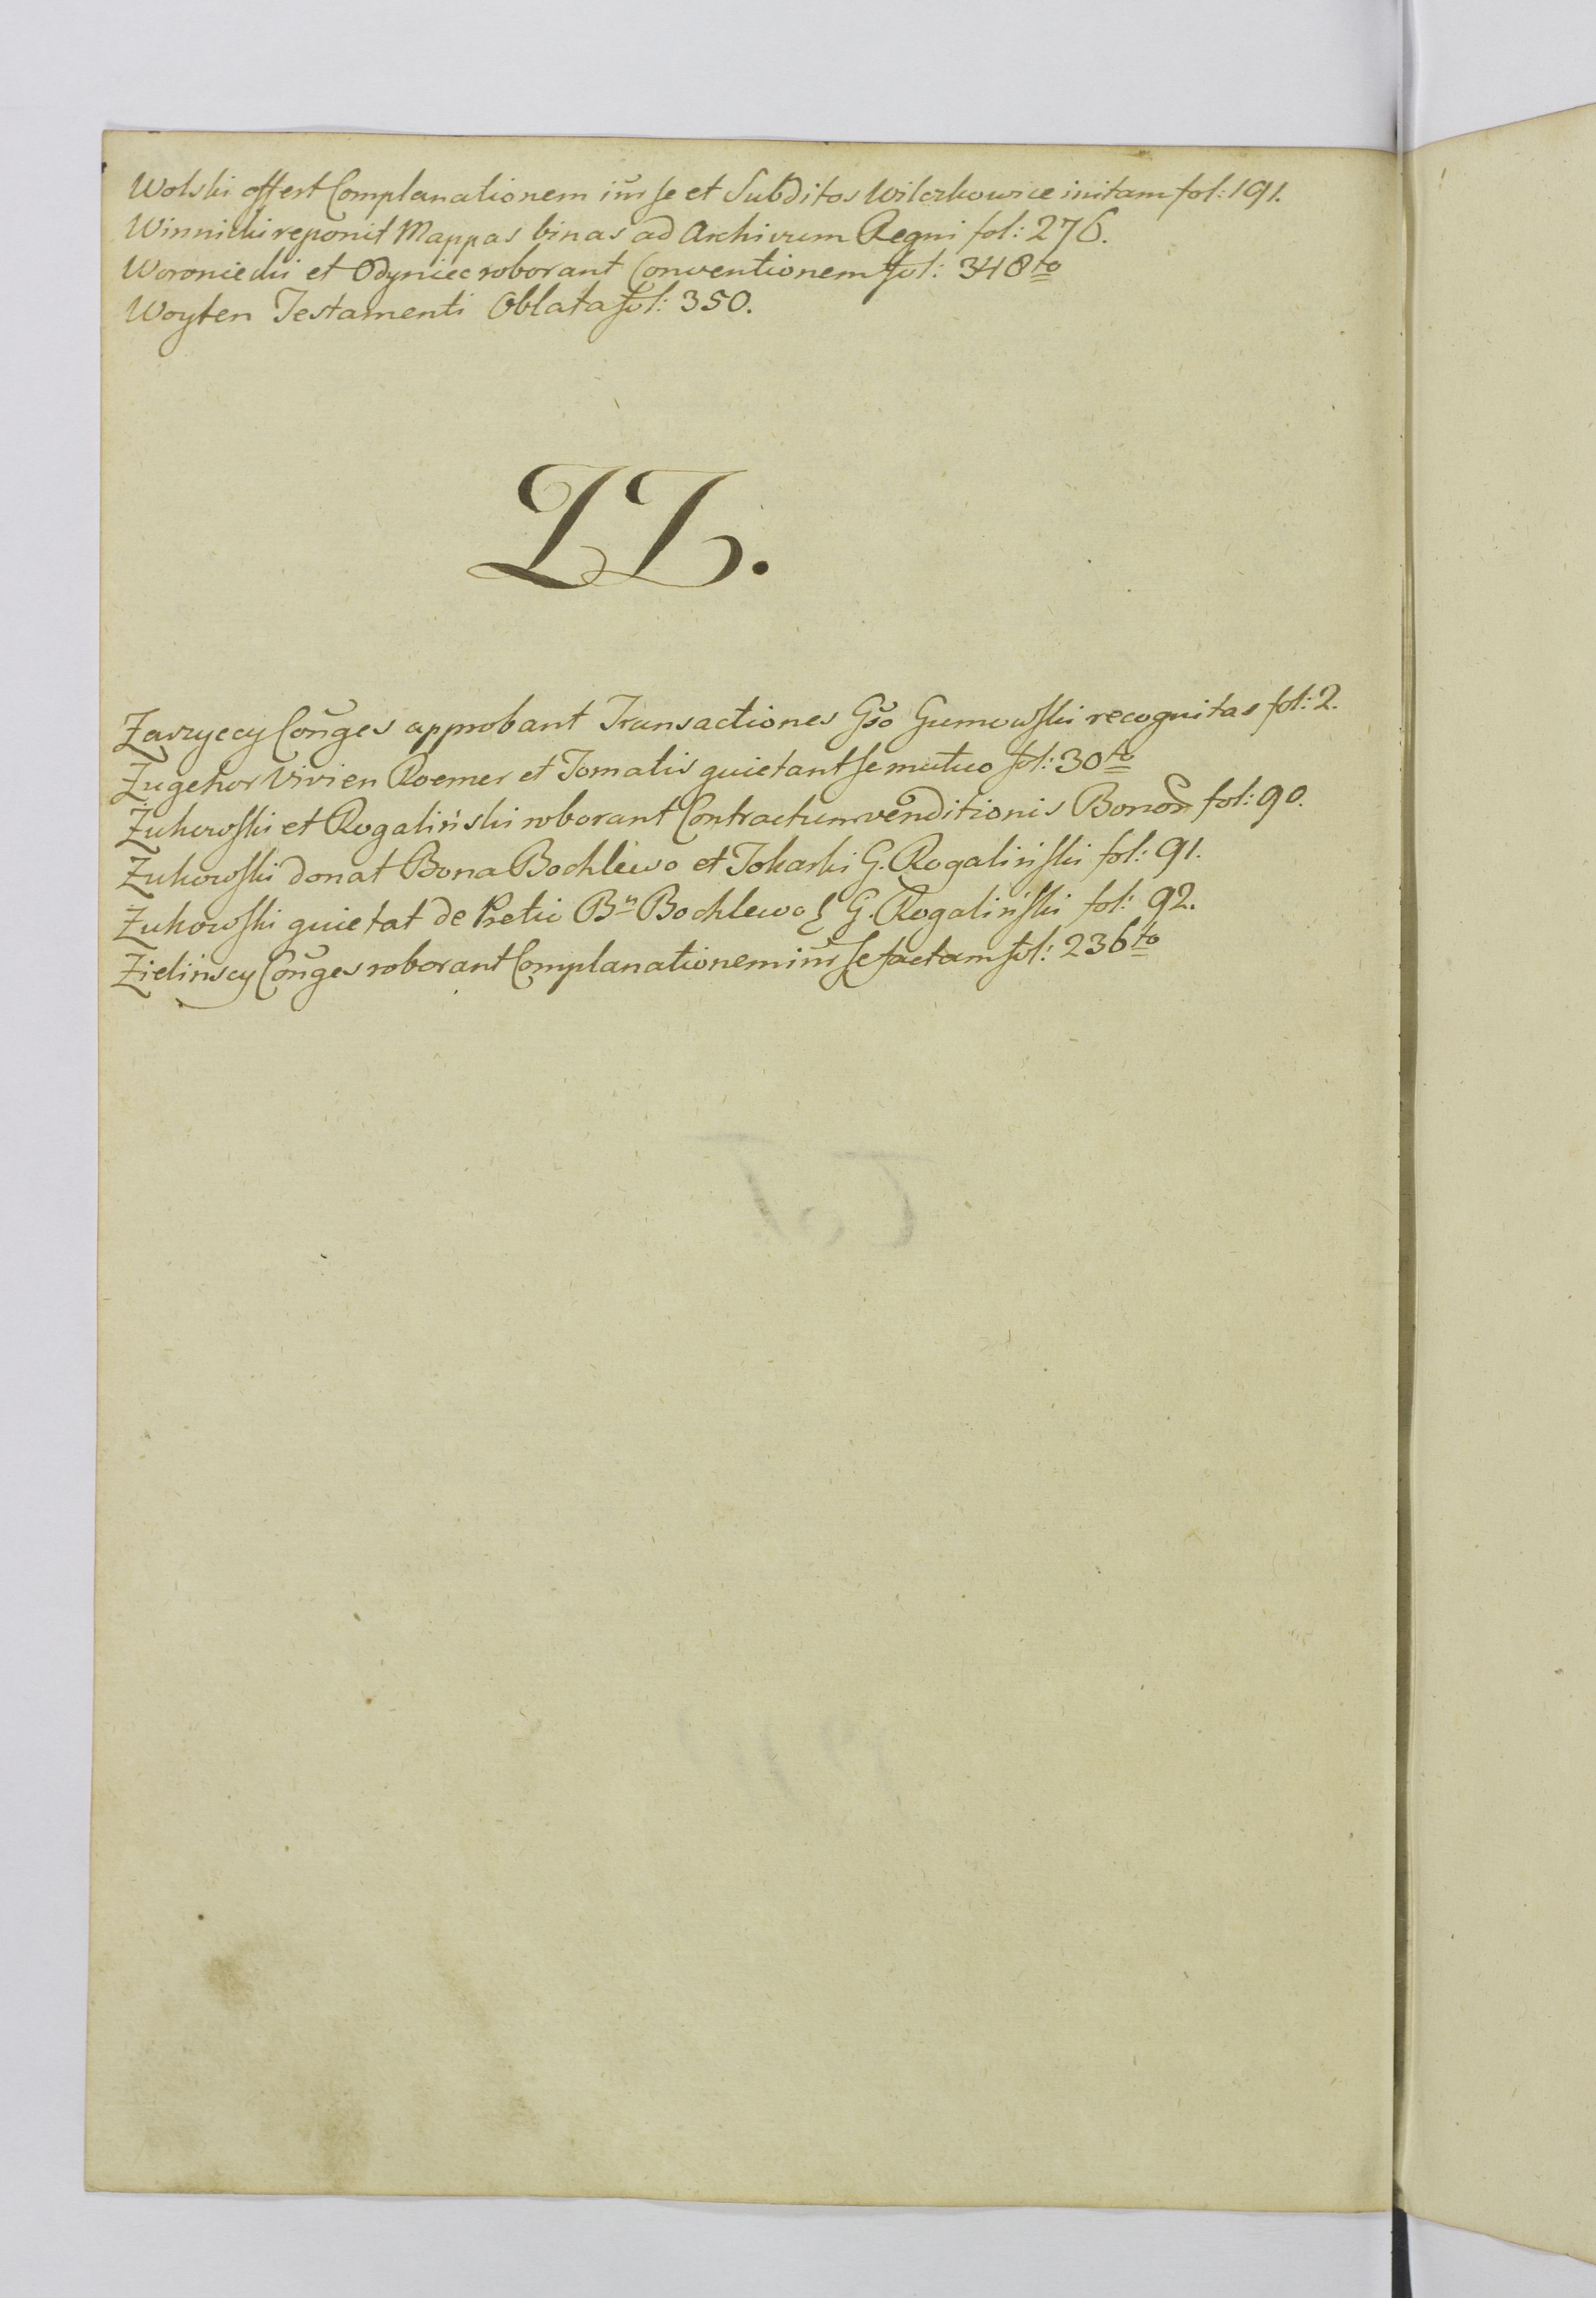 Wolski offert Complanationem iñr se et Subditos Wilczkowice initam fol: 191.
Winnicki reponit Mappas binas ad Archivum Regni fol: 276.
Woroniecki et Odyniec roborant Conventionem fol: 348to
Woyten Testamenti Oblata fol: 350.
ZZ.
Conges approbant Transactiones Gso Gumowski recognitas fol: 2.
Zugehor Vivien Roemer et Tomatis quietant se mutuo fol: 30to
Żukowski et Rogaliński roborant Contractum venditionis Bonor fol: 90.
Żukowski donat Bona Bochlewo et Tokarki G. Rogaliński fol: 91.
Żukowski quietat de Pretio Bn Bochlewo G. Rogaliński fol: 92.
Zielinscy Conges roborant Complanationem iñr se factam fol: 236to